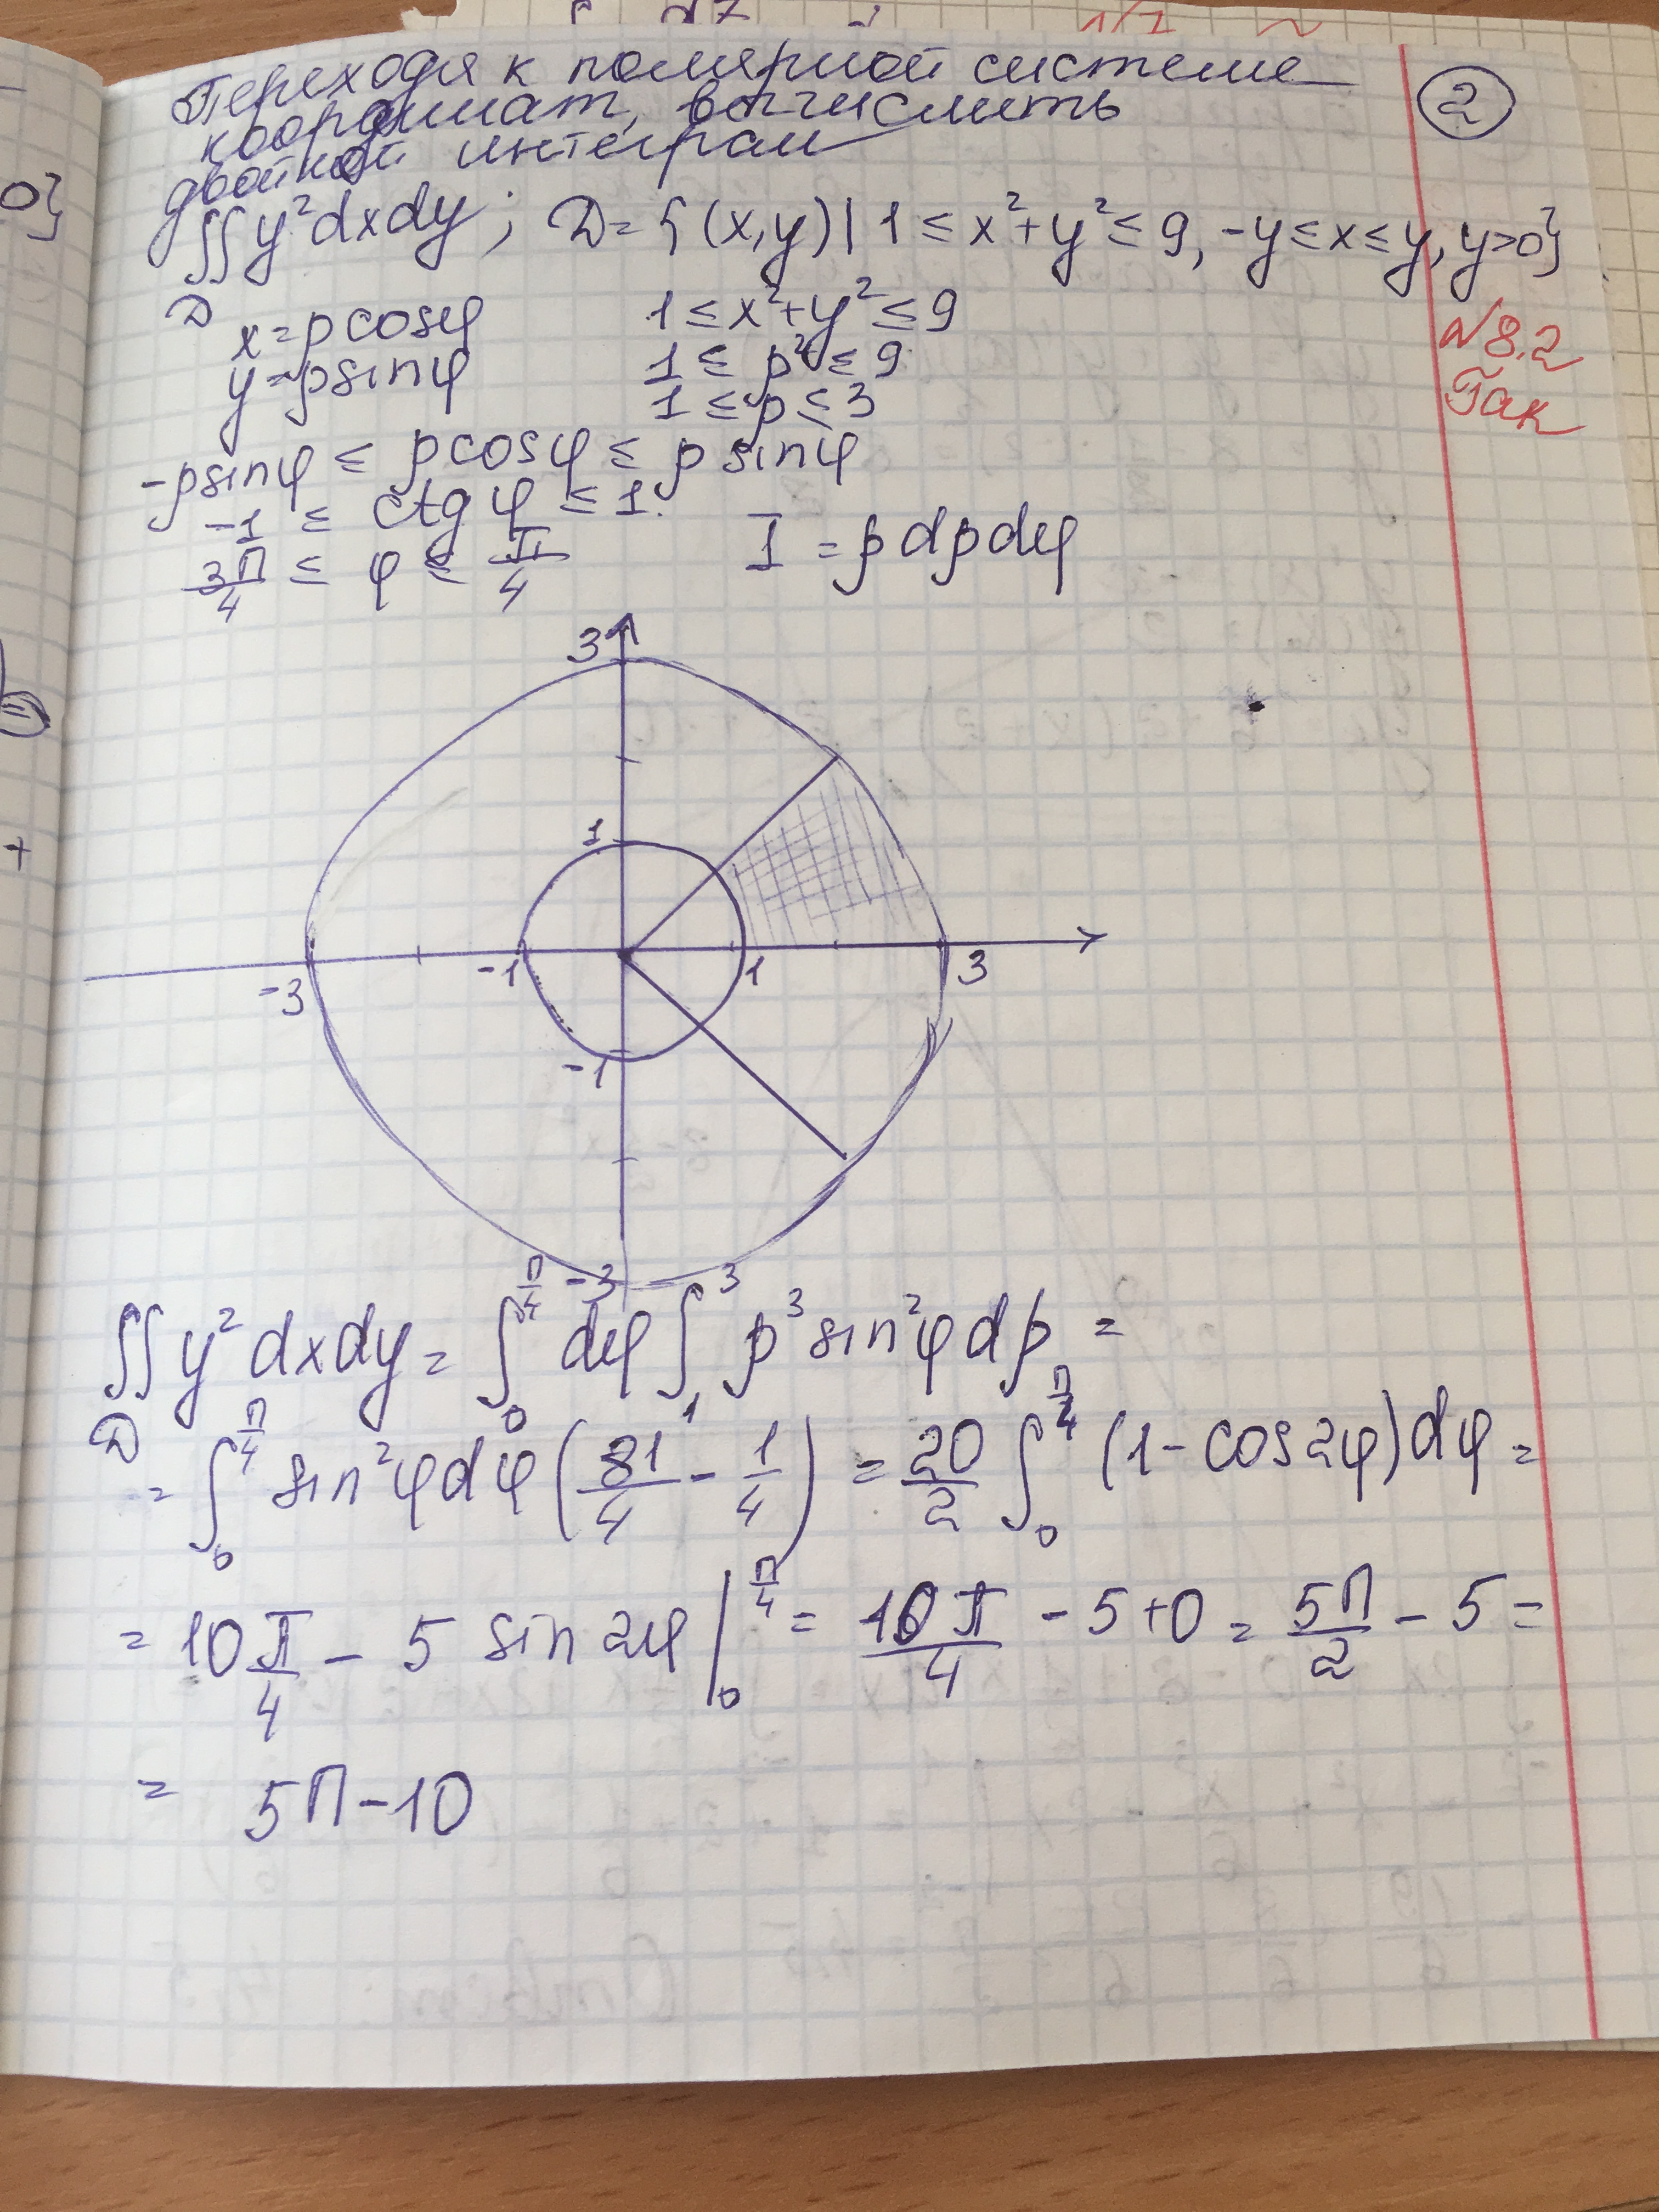 Переходя к полярной системе
координат, вычислить
двойной интеграл
∬ y² dxdy; D = {(x,y) | 1 ≤ x²+y² ≤ 9, -y ≤ x ≤ y, y>0}
D
②
x = ρcosφ
y = ρsinφ
1 ≤ x²+y² ≤ 9
1 ≤ ρ² ≤ 9
1 ≤ ρ ≤ 3
№8.2
Гак
-ρsinφ ≤ ρcosφ ≤ ρ sinφ
-1 ≤ ctg φ ≤ 1.
3π/4 ≤ φ ≤ π/4
I = ρ dρ dφ
3
1
-3
-1
1
3
-1
-3
∬_D y² dxdy = ∫_0^{π/4} dφ ∫_1^3 ρ³ sin²φ dρ =
= ∫_0^{π/4} sin²φ dφ (81/4 - 1/4) = 20/2 ∫_0^{π/4} (1 - cos2φ) dφ =
= 10 π/4 - 5 sin 2φ |_0^{π/4} = 10π/4 - 5 + 0 = 5π/2 - 5 =
= 5π - 10
0}
+